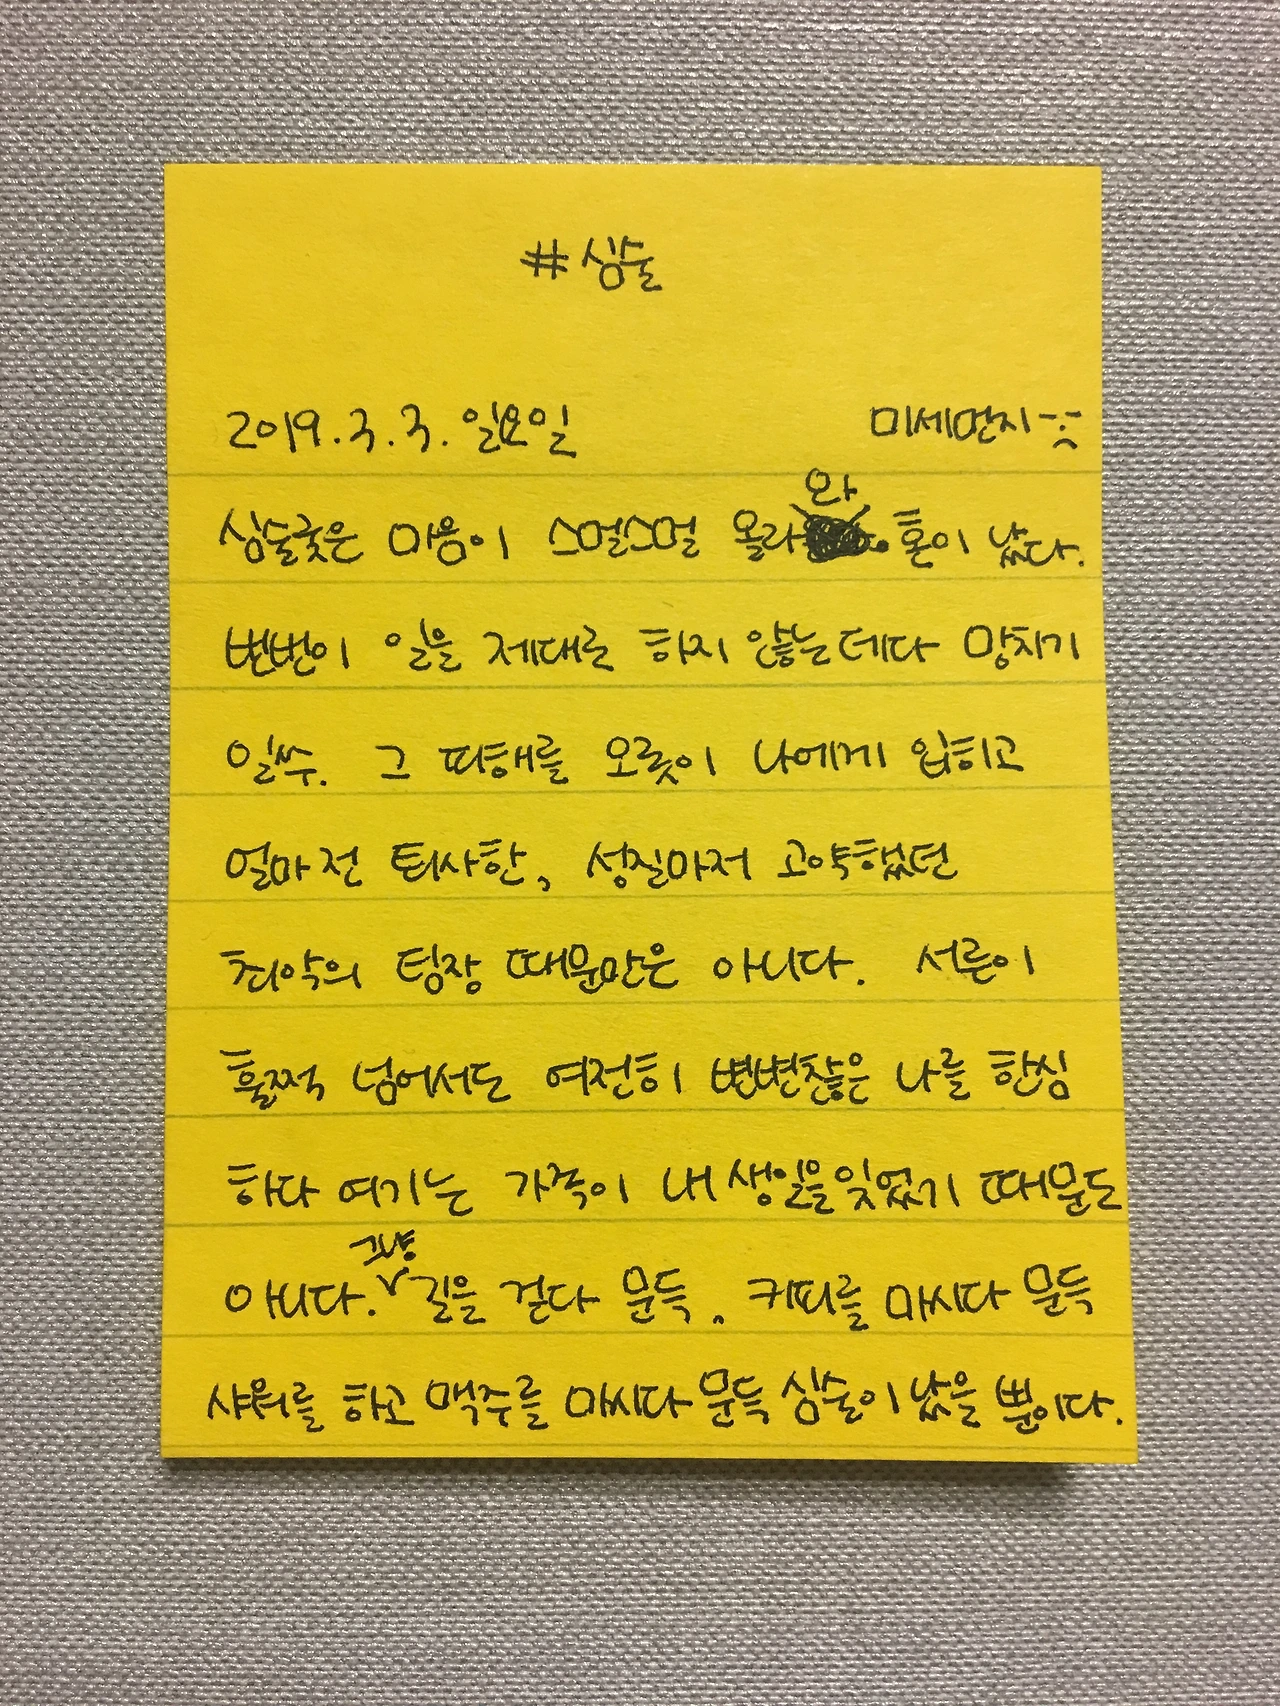 #심술
2019.3.3. 일요일 미세먼지
심술궂은 마음이 스멀스멀 올라와 혼이 났다.
번번이 일을 제대로 하지 않는데다 망치기
일쑤. 그 피해를 오롯이 나에게 입히고
얼마 전 퇴사한, 성질마저 고약했던
최악의 팀장 때문만은 아니다. 서른이
훌쩍 넘어서도 여전히 변변찮은 나를 한심
하다 여기는 가족이 내 생일을 잊었기 때문도
아니다. 그냥 길을 걷다 문득, 커피를 마시다 문득
샤워를 하고 맥주를 마시다 문득 심술이 났을 뿐이다.